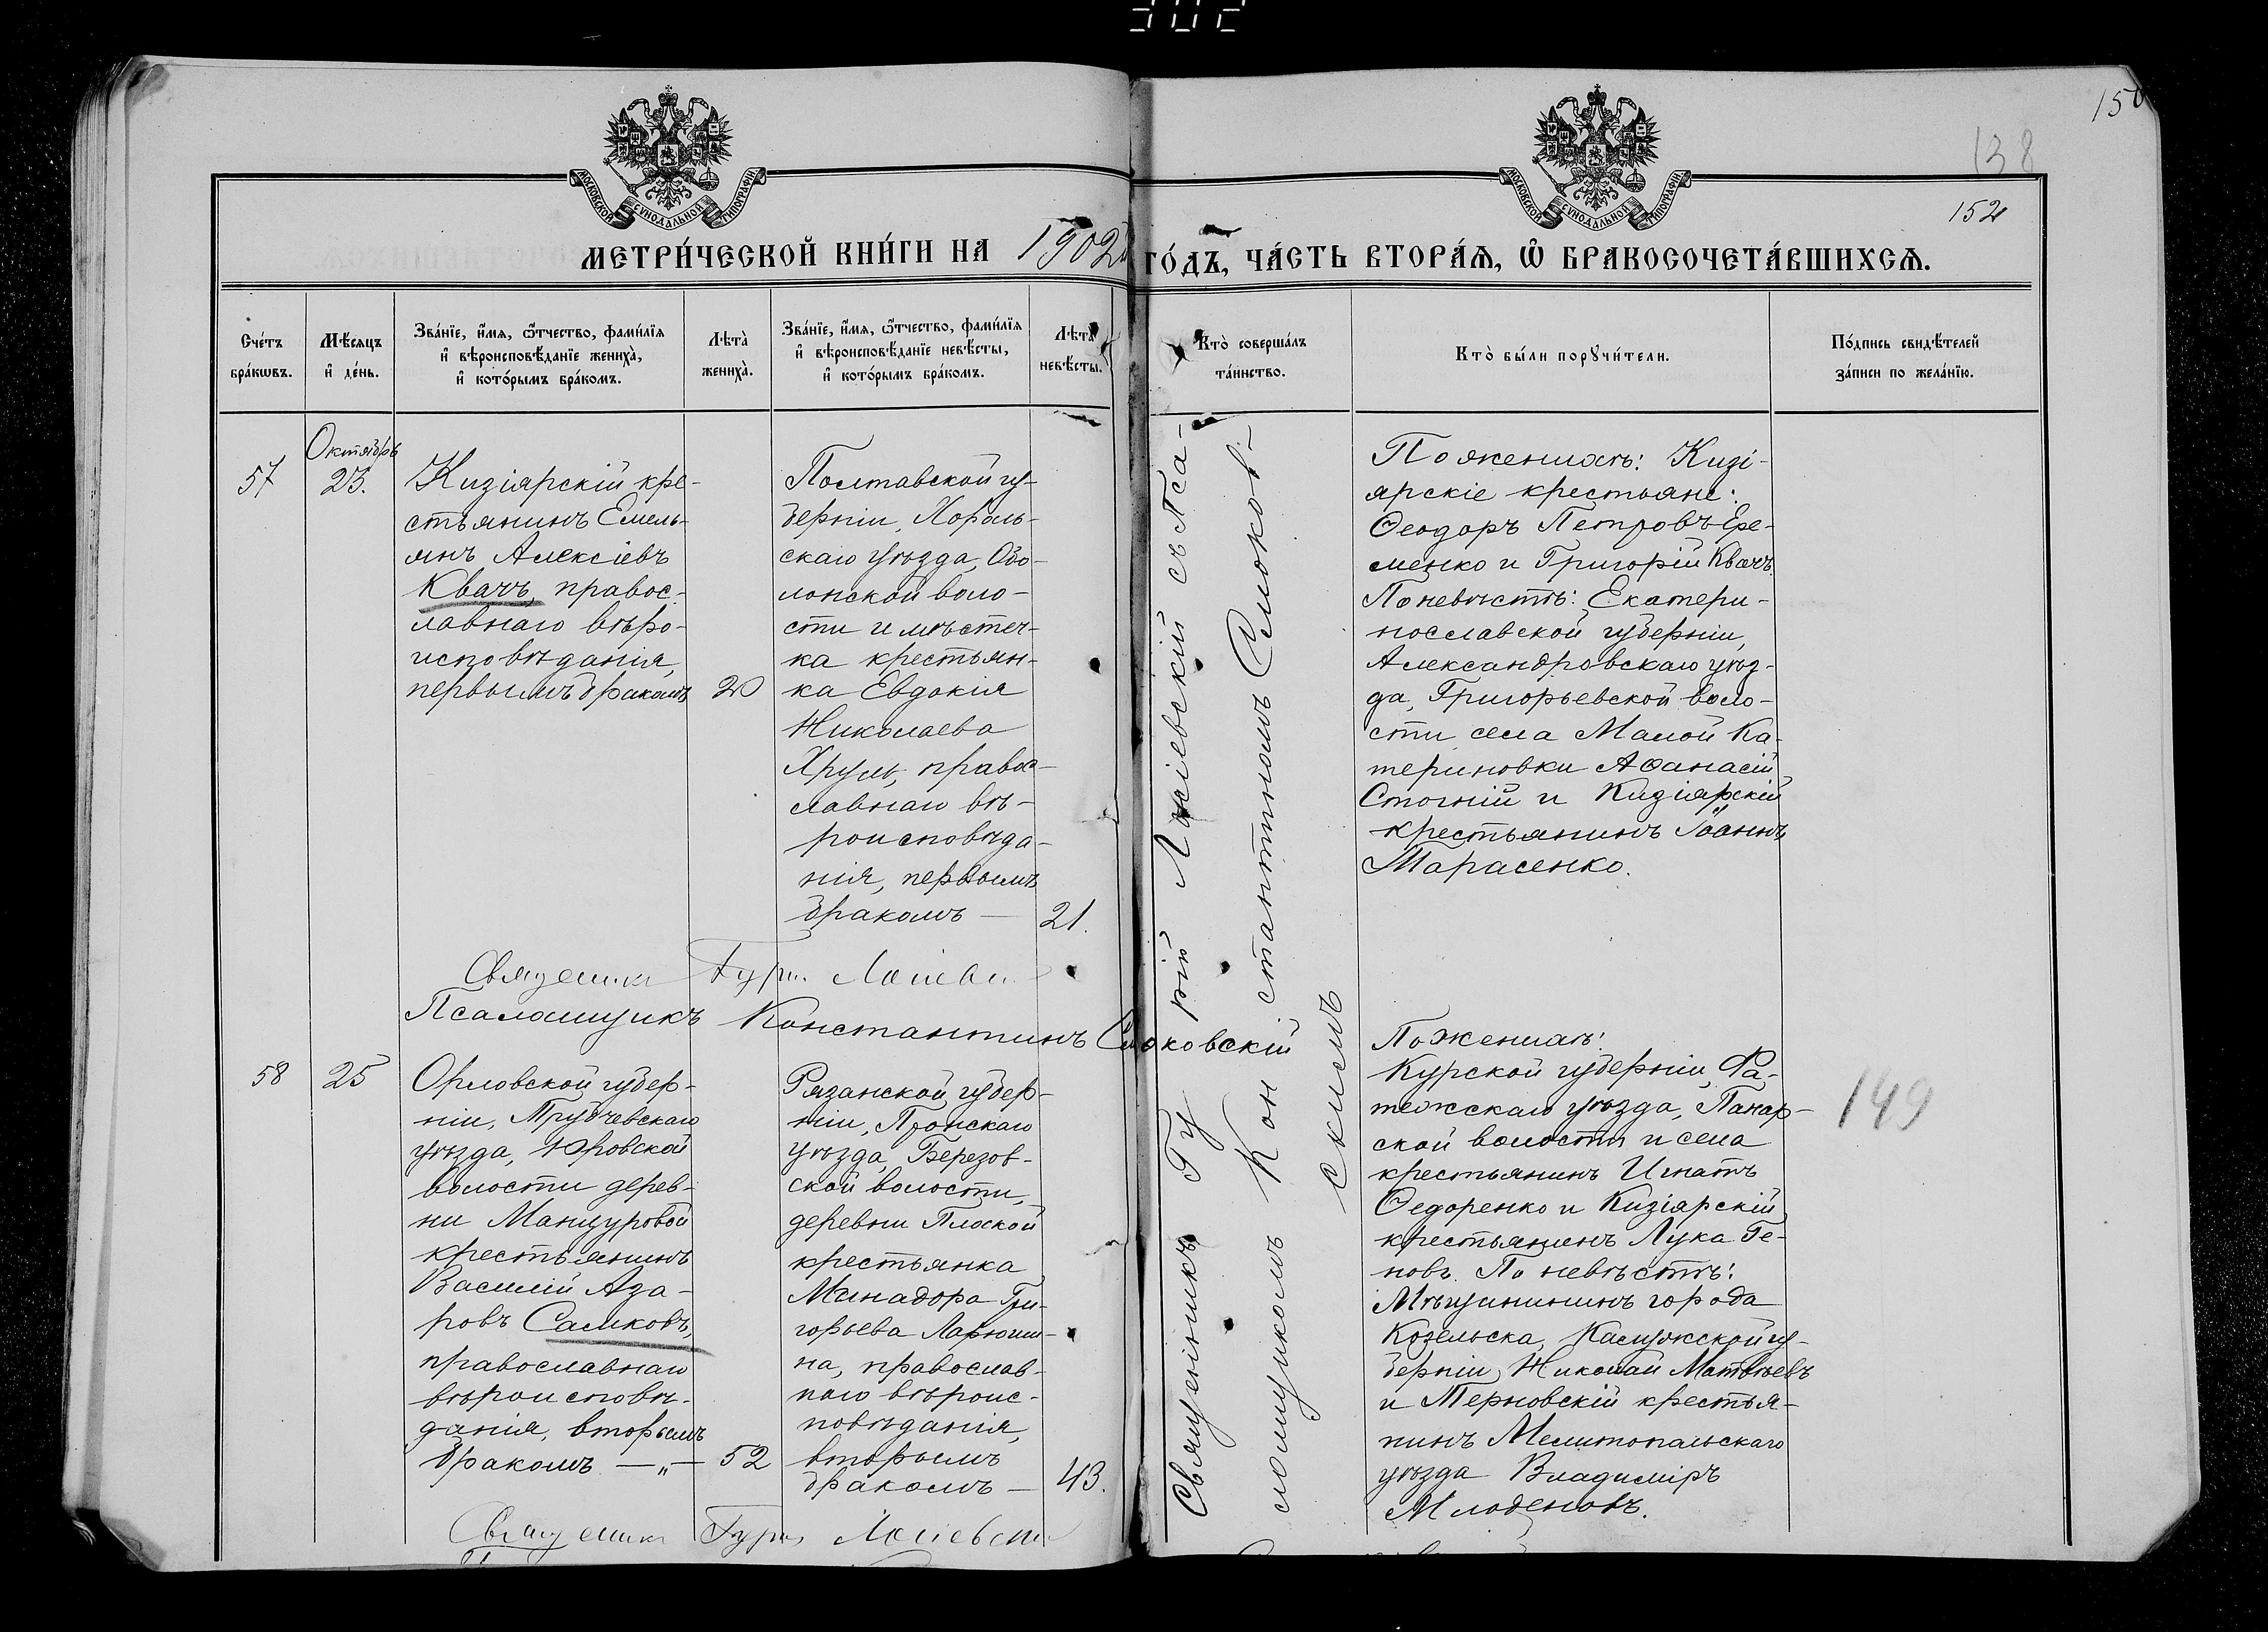 302
150
138
152
МОСКОВСКОЙ СУНОДАЛЬНОЙ ТИПОГРАФІИ
МОСКОВСКОЙ СУНОДАЛЬНОЙ ТИПОГРАФІИ
МЕТРИ́ЧЕСКОЙ КНИ́ГИ НА 1902 ГО́ДЪ, ЧА́СТЬ ВТОРА́Ѧ, Ѽ БРАКОСОЧЕТА́ВШИХСѦ.
Сче́тъ бра́кѡвъ.
Мѣ́сяцъ и҆ де́нь.
Зва́нїе, и҆́мя, ѻ҆́тчество, фами́лїя и҆ вѣроисповѣ́данїе жениха̀, и҆ кото́рымъ бра́комъ.
Лѣта̀ жениха̀.
Зва́нїе, и҆́мя, ѻ҆́тчество, фами́лїя и҆ вѣроисповѣ́данїе невѣ́сты, и҆ кото́рымъ бра́комъ.
Лѣта̀ невѣ́сты.
Кто̀ соверша́лъ та́инство.
Кто̀ бы́ли порꙋчи́тели.
По́дпись свидѣ́телей за́писи по жела́нїю.
57
Октябрь
23.
Кизіярскій кре-
стьянинъ Емель-
янъ Алексіевъ
Квачъ, правос-
лавнаго вѣро-
исповѣданія,
первымъ бракомъ
20
Полтавской гу-
берніи, Хороль-
скаго уѣзда, Обо-
лонской воло-
сти и мѣстеч-
ка крестьян-
ка Евдокія
Николаева
Хруль, правос-
лавнаго вѣ-
роисповѣда-
нія, первымъ
бракомъ —
21.
Священникъ Гурій Лоніевскій съ Пса-
ломщикомъ Константиномъ Смоков-
скимъ
По женихѣ: Кизі-
ярскіе крестьяне:
Ѳеодоръ Петровъ Ере-
менко и Григорій Квачъ.
По невѣстѣ: Екатери-
нославской губерніи,
Александровскаго уѣз-
да, Григорьевской воло-
сти, села Малой Ка-
териновки Аѳанасій
Стогній и Кизіярскій
крестьянинъ Іоаннъ
Тарасенко.
Священникъ Гурій
Псаломщикъ Константинъ Смоковскій
58
25
Орловской губер-
ніи, Трубчевскаго
уѣзда, Юровской
волости дерев-
ни Манцуровой
крестьянинъ
Василій Аза-
ровъ Самковъ,
православнаго
вѣроисповѣ-
данія, вторымъ
бракомъ — „ —
52
Рязанской губер-
ніи, Пронскаго
уѣзда, Березов-
ской волости,
деревни Плоской
крестьянка
Минадора Гри-
горьева Ларюши-
на, православ-
наго вѣроис-
повѣданія,
вторымъ
бракомъ —
43.
По женихѣ:
Курской губерніи, Фа-
тежскаго уѣзда,
ской волости и села
крестьянинъ Игнатъ
Ѳедоренко и Кизіярскій
крестьянинъ Лука Ге-
новъ. По невѣстѣ:
Мѣщанинъ города
Козельска, Калужской гу-
берніи, Николай Матвѣевъ
и Терновскій крестья-
нинъ Мелитопольскаго
уѣзда Владиміръ
Младеновъ.
149
Священникъ Гурій